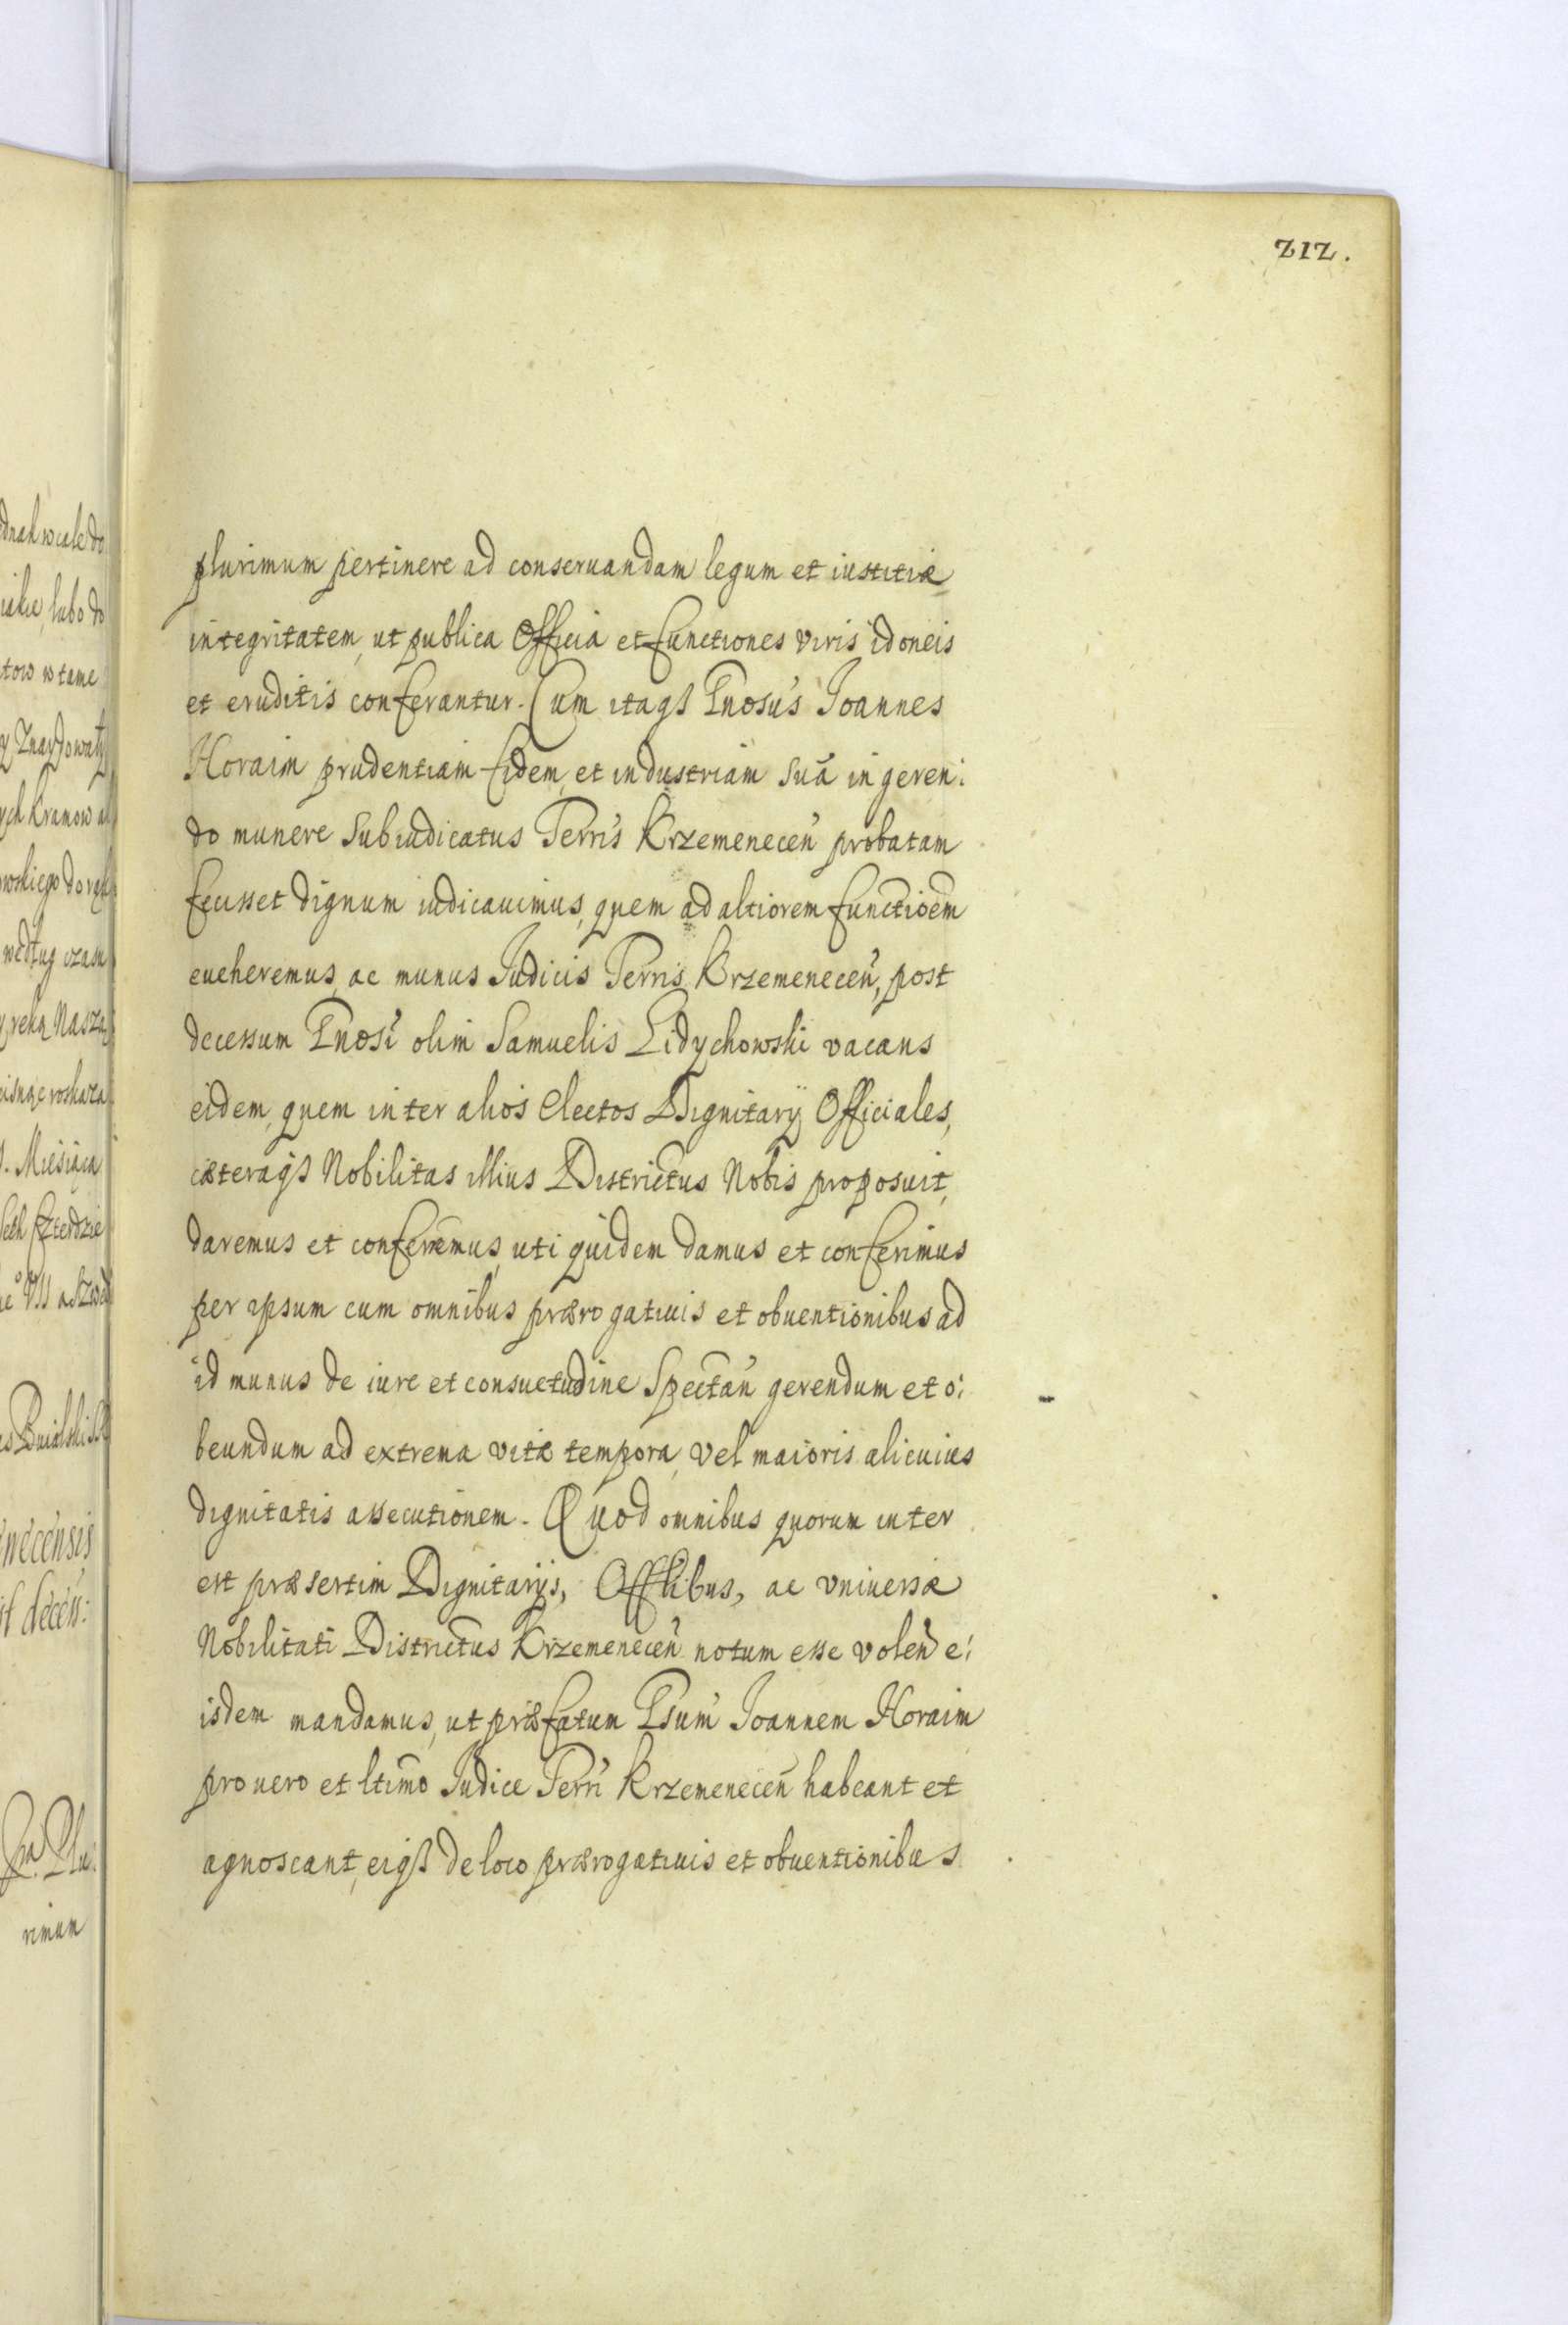 212.
plurimum pertinere ad conseruandam legum et iustitiæ
integritatem, ut publica Officia et functiones viris idoneis
et eruditis conferantur. Cum itaqꝫ Gnosus Joannes
Horaim prudentiam fidem, et industriam suā in geren:
do munere Subiudicatus Terris Krzemenecen̄ probatam
fecisset dignum iudicauimus, quem ad altiorem functioēm
eueheremus, ac munus Judicis Terris Krzemenecen̄, post
decessum Gnosi olim Samuelis Lidychowski vacans
eidem, quem inter alios electos Dignitarij Officiales,
cæteraqꝫ Nobilitas illius Districtus Nobis proposuit,
daremus et conferremus, uti quidem damus et conferimus
per ipsum cum omnibus prærogatiuis et obuentionibus ad
id munus de iure et consuetudine Spectan̄ gerendum et o:
beundum ad extrema vitæ tempora, vel maioris alicuius
dignitatis assecutionem. Quod omnibus quorum inter
est præsertim Dignitarijs, Offlibus, ac vniuersæ
Nobilitati Districtus Krzemenecen̄ notum esse volen̄ e:
isdem mandamus, ut præfatum Gsum Joannem Horaim
pro uero et ltimo Judice Terri Krzemenecen̄ habeant et
agnoscant, eiqꝫ de loco prærogatiuis et obuentionibus
ych Kramow
Nasza
Miesiąca
necensis
decen:
rimum